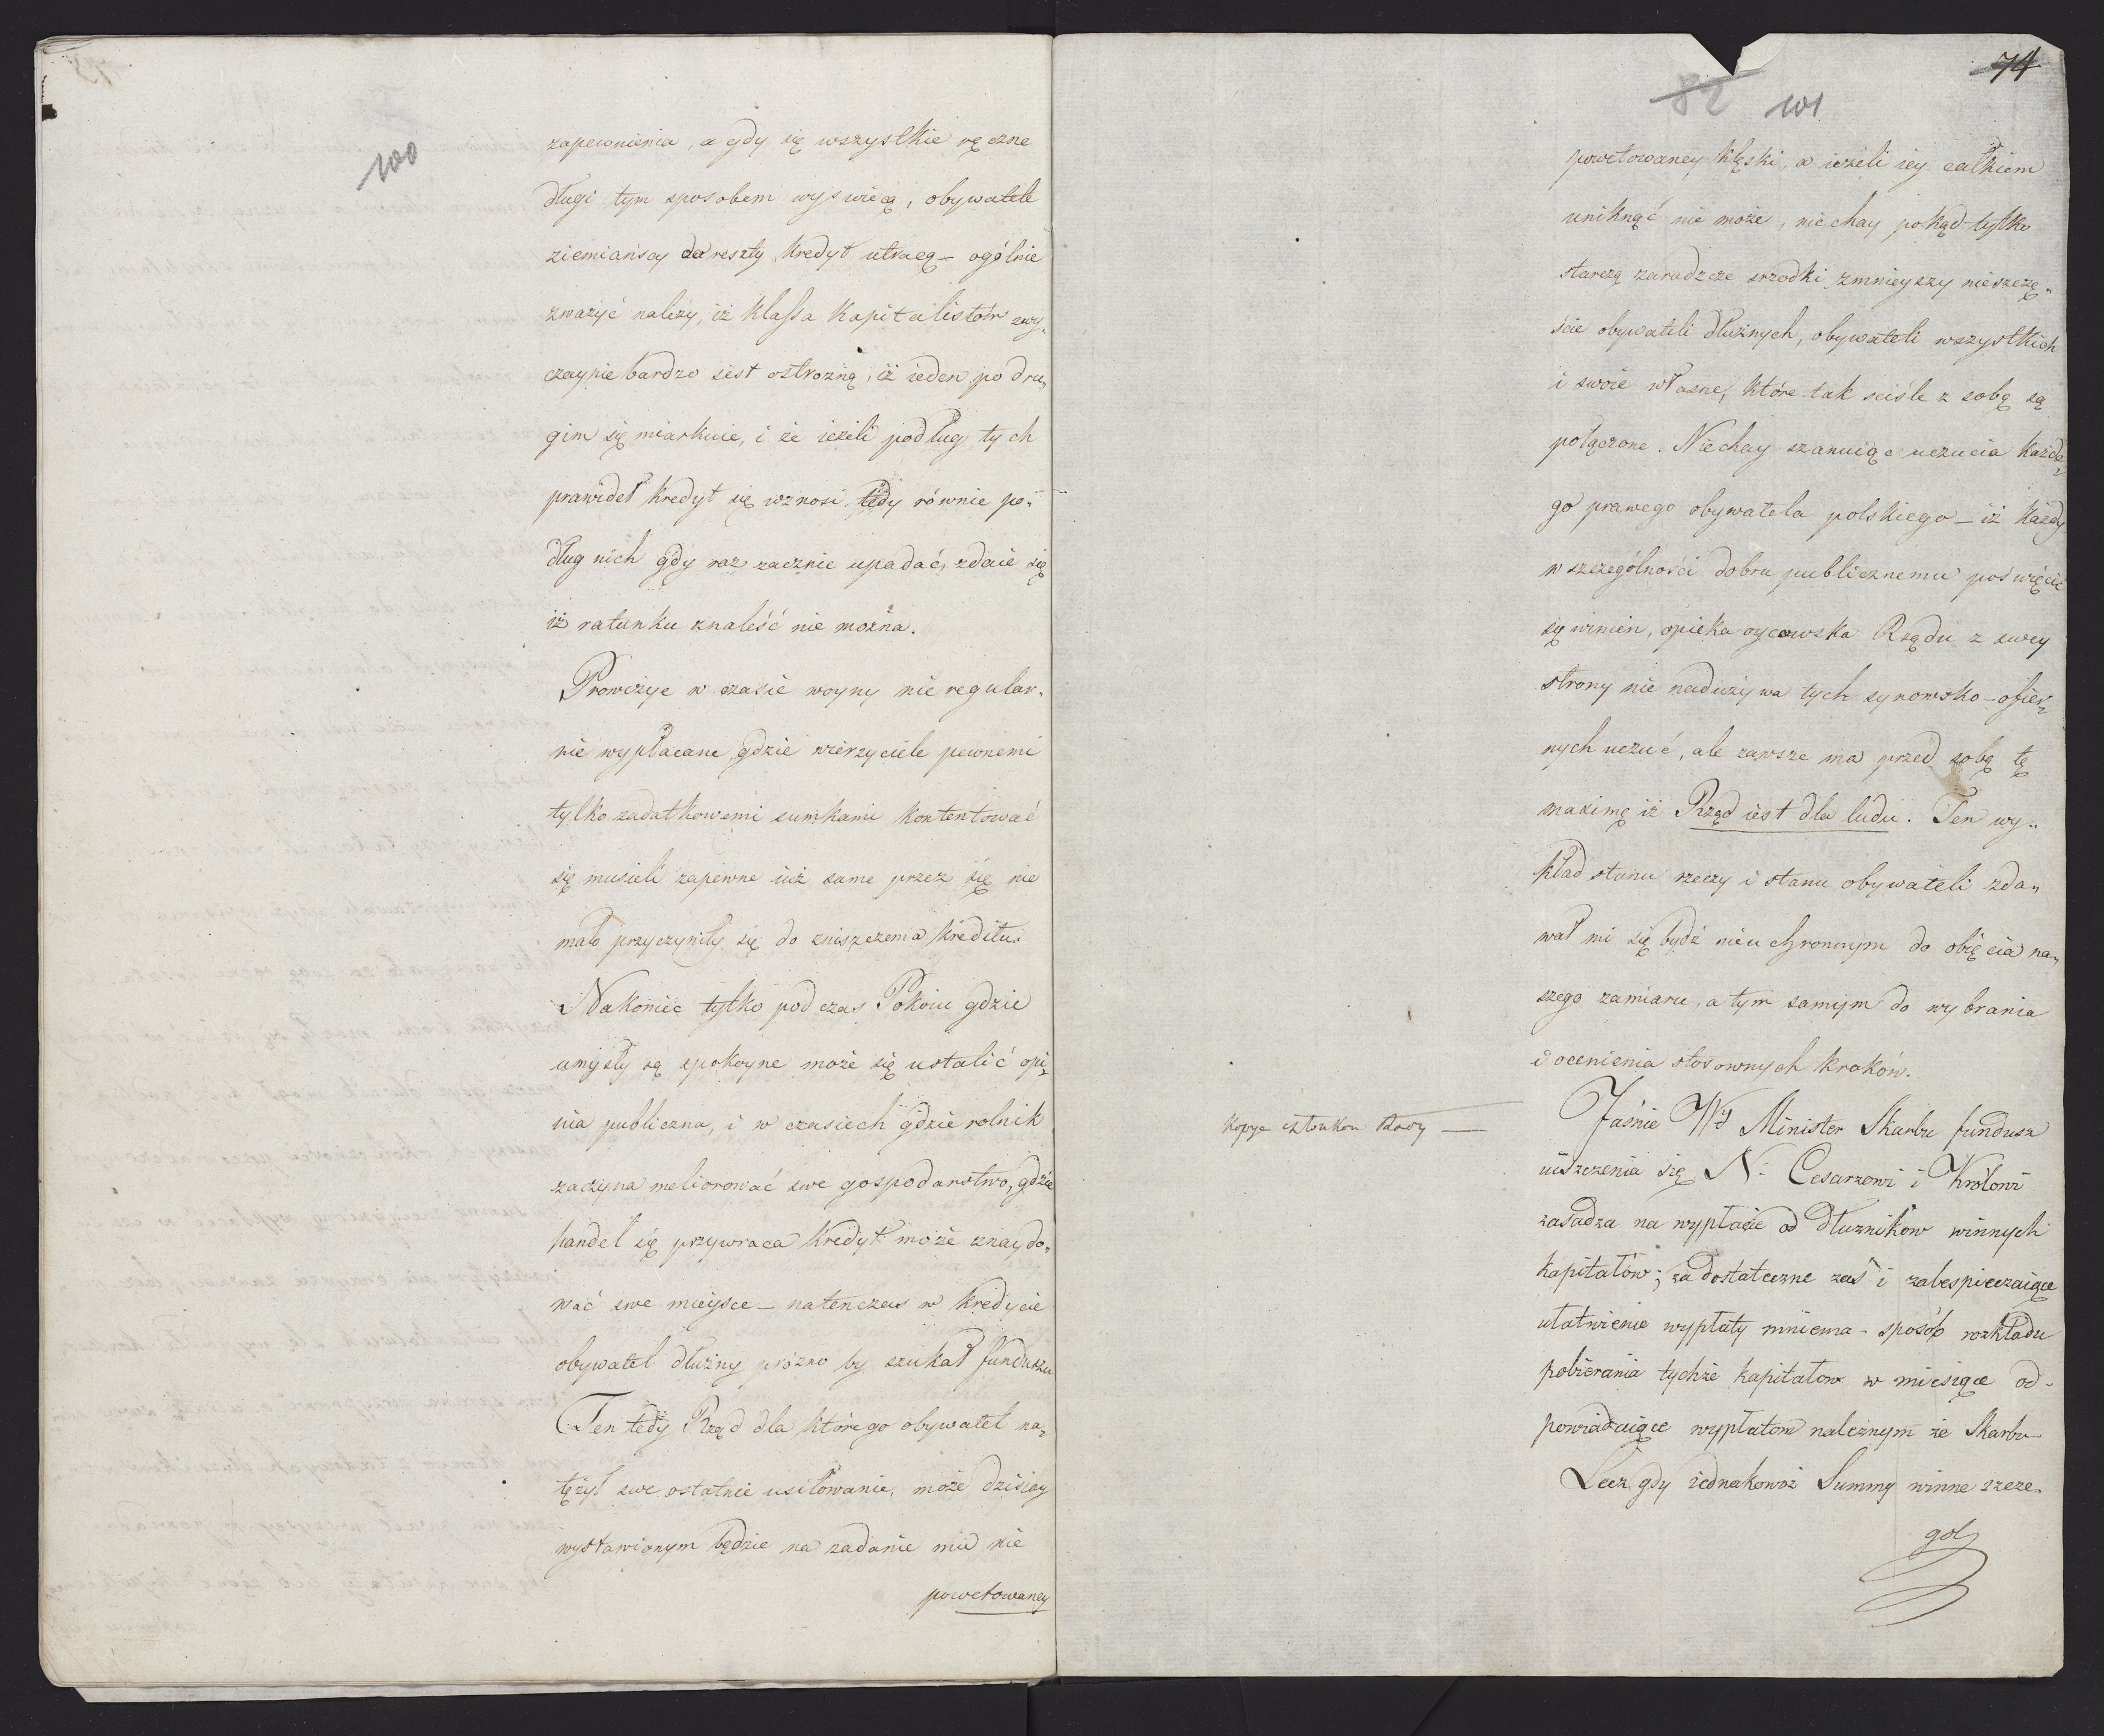 100
zapewnienia, a gdy się wszystkie ręczne
długi tym sposobem wyświecą, obywatele
ziemiańscy do reszty kredyt utracą – ogólnie
zważyć należy, iż klassa kapitalistów zwy„
czaynie bardzo iest ostrożną, iż ieden po dru„
gim się miarkuie, i że ieżeli podług tych
prawideł kredyt się wznosi, tedy równie po„
dług nich gdy raz zacznie upadać, zdaie się
iż ratunku znaleść nie można.
Prowizye w czasie woyny nie regular„
nie wypłacane, gdzie wierzyciele pewnemi
tylko zadatkowemi sumkami kontentować
się musieli zapewne iuż same przez się nie
mało przyczyniły się do zniszczenia kreditu.
Nakoniec tylko podczas Pokoiu gdzie
umysły są spokoyne może się ustalić opi„
nia publiczna, i w czasiech gdzie rolnik
zaczyna meliorować swe gospodarstwo, gdzie
handel się przywraca kredyt może znaydo„
wać swe mieysce – natenczas w kredycie
obywatel dłużny próżno by szukał funduszu
Ten tedy Rząd dla którego obywatel na„
tężył swe ostatnie usiłowanie, może dzisiay
wystawionym będzie na zadanie mu nie
powetowaney
74
82 101
powetowaney klęski, a ieżeli iey całkiem
uniknąć nie może, niechay pokąd tylko
starczą zaradcze srzodki zmnieyszy nieszczę„
ście obywateli dłużnych, obywateli wszystkich
i swoie własne, które tak ściśle z sobą są
połączone. Niechay szanuiąc uczucia każde„
go prawego obywatela polskiego – iż każdy
w szczególności dobru publicznemu poświęcić
się winien, opieka oycowska Rządu z swey
strony nie nadużywa tych synowsko – ofiar„
nych uczuć, ale zawsze ma przed sobą tę
maximę iż Rząd iest dla ludu. Ten wy„
kład stanu rzeczy i stanu obywateli zda„
wał mi się bydź nieuchronnym do obięcia na„
szego zamiaru, a tym samym do wybrania
i ocenienia stosownych kroków.
Kopya członkom Rady
Jaśnie Wy Minister Skarbu fundusz
uiszczenia się N. Cesarzowi i Królowi
zasadza na wypłacie od Dłużników winnych
kapitałów; za dostateczne zaś i zabespieczaiące
ułatwienie wypłaty mniema – sposób rozkładu
pobierania tychże kapitałów w miesiące od„
powiadaiące wypłatom należnym ze Skarbu
Lecz gdy iednakowoż Summy winne szcze„
gol